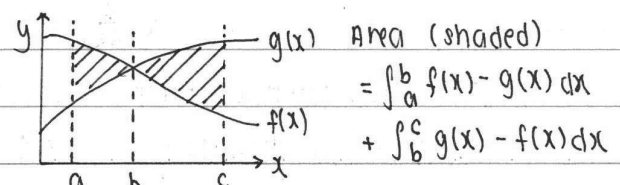 y
g(x)
f(x)
x
a b c
Area (shaded)
= ∫ₐᵇ f(x) - g(x) dx
+ ∫_b^c g(x) - f(x) dx